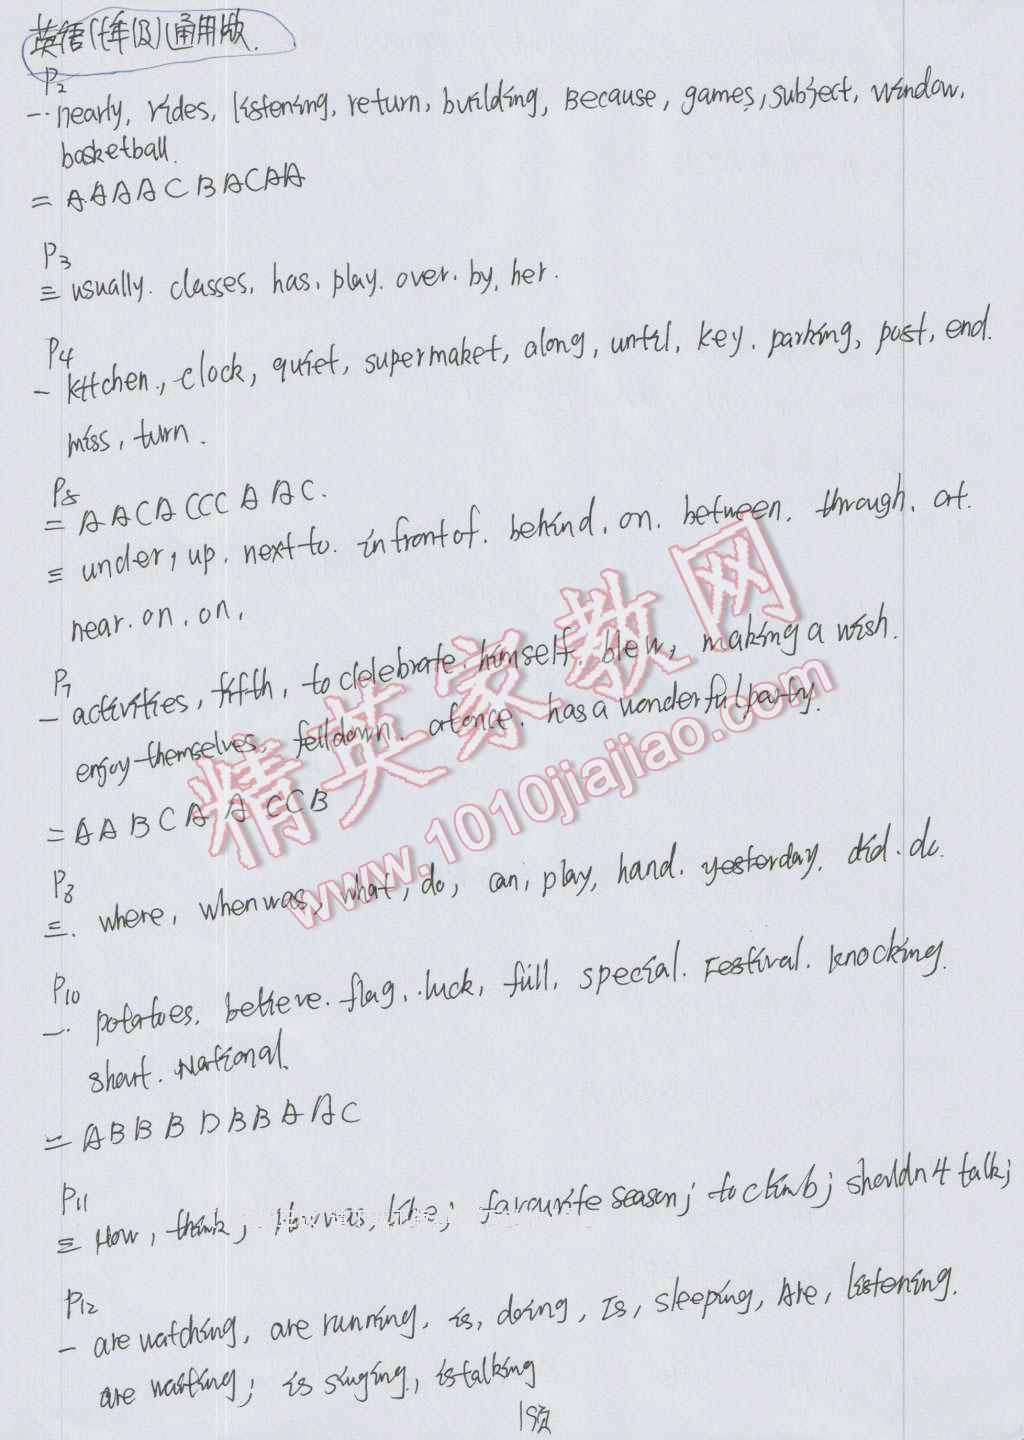 英语(七年级)通用版.
P2
一. nearly, rides, listening, return, building, Because, games, subject, window,
basketball.
二 AAAACBACAA
P3
三 usually. classes, has, play. over. by, her.
P4
一 kitchen., clock, quiet, supermaket, along, until, key. parking, post, end.
miss, turn.
P5
二 AACACCCAAC.
三 under, up. next to. in front of. behind. on. between. through. at.
near. on. on.
P7
一 activities, fifth, to clelebrate. himself. blew, making a wish.
enjoy themselves. fell down. at once. has a wonderful party.
二 AABCAACCB
P8
三. where, when was, what, do, can, play, hand. yesterday. did. do.
P10
一. potatoes. believe. flag. luck, full, special. Festival. knocking.
short. National.
二 ABBBDBBAAC
P11
三 How, think; How was, like; favourite season; to climb; shouldn't talk;
P12
一 are watching, are running, is, doing, Is, sleeping, Are, listening.
are waiting; is singing, is talking
1页
精英家教网
www.1010jiajiao.com